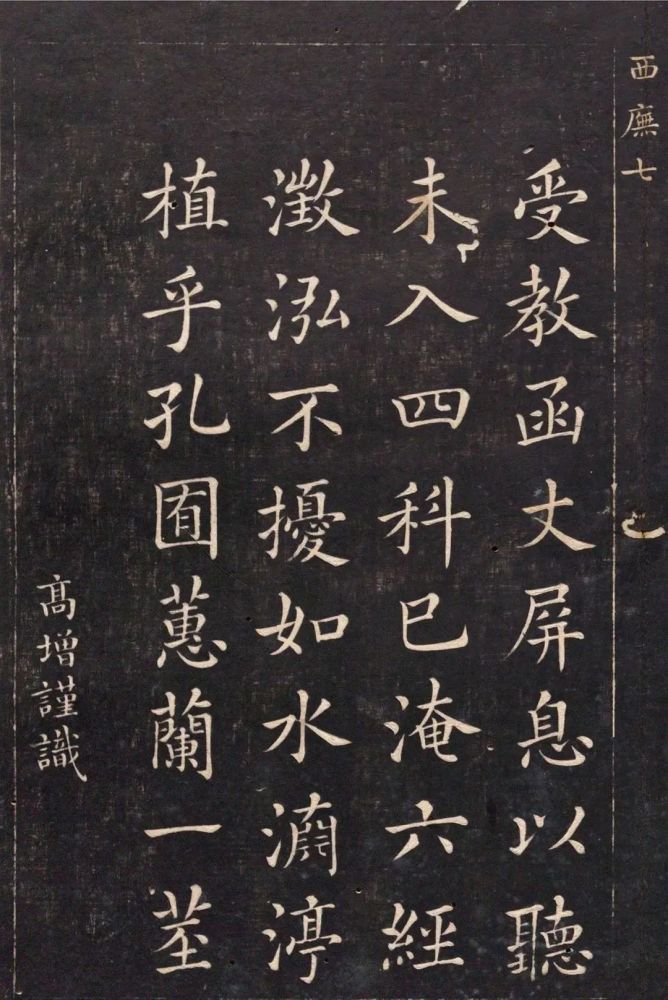 西廡七
受教函丈屏息以聽
未入四科已淹六經
澂泓不擾如水淵渟
植乎孔囿蕙蘭一莖
高增謹識